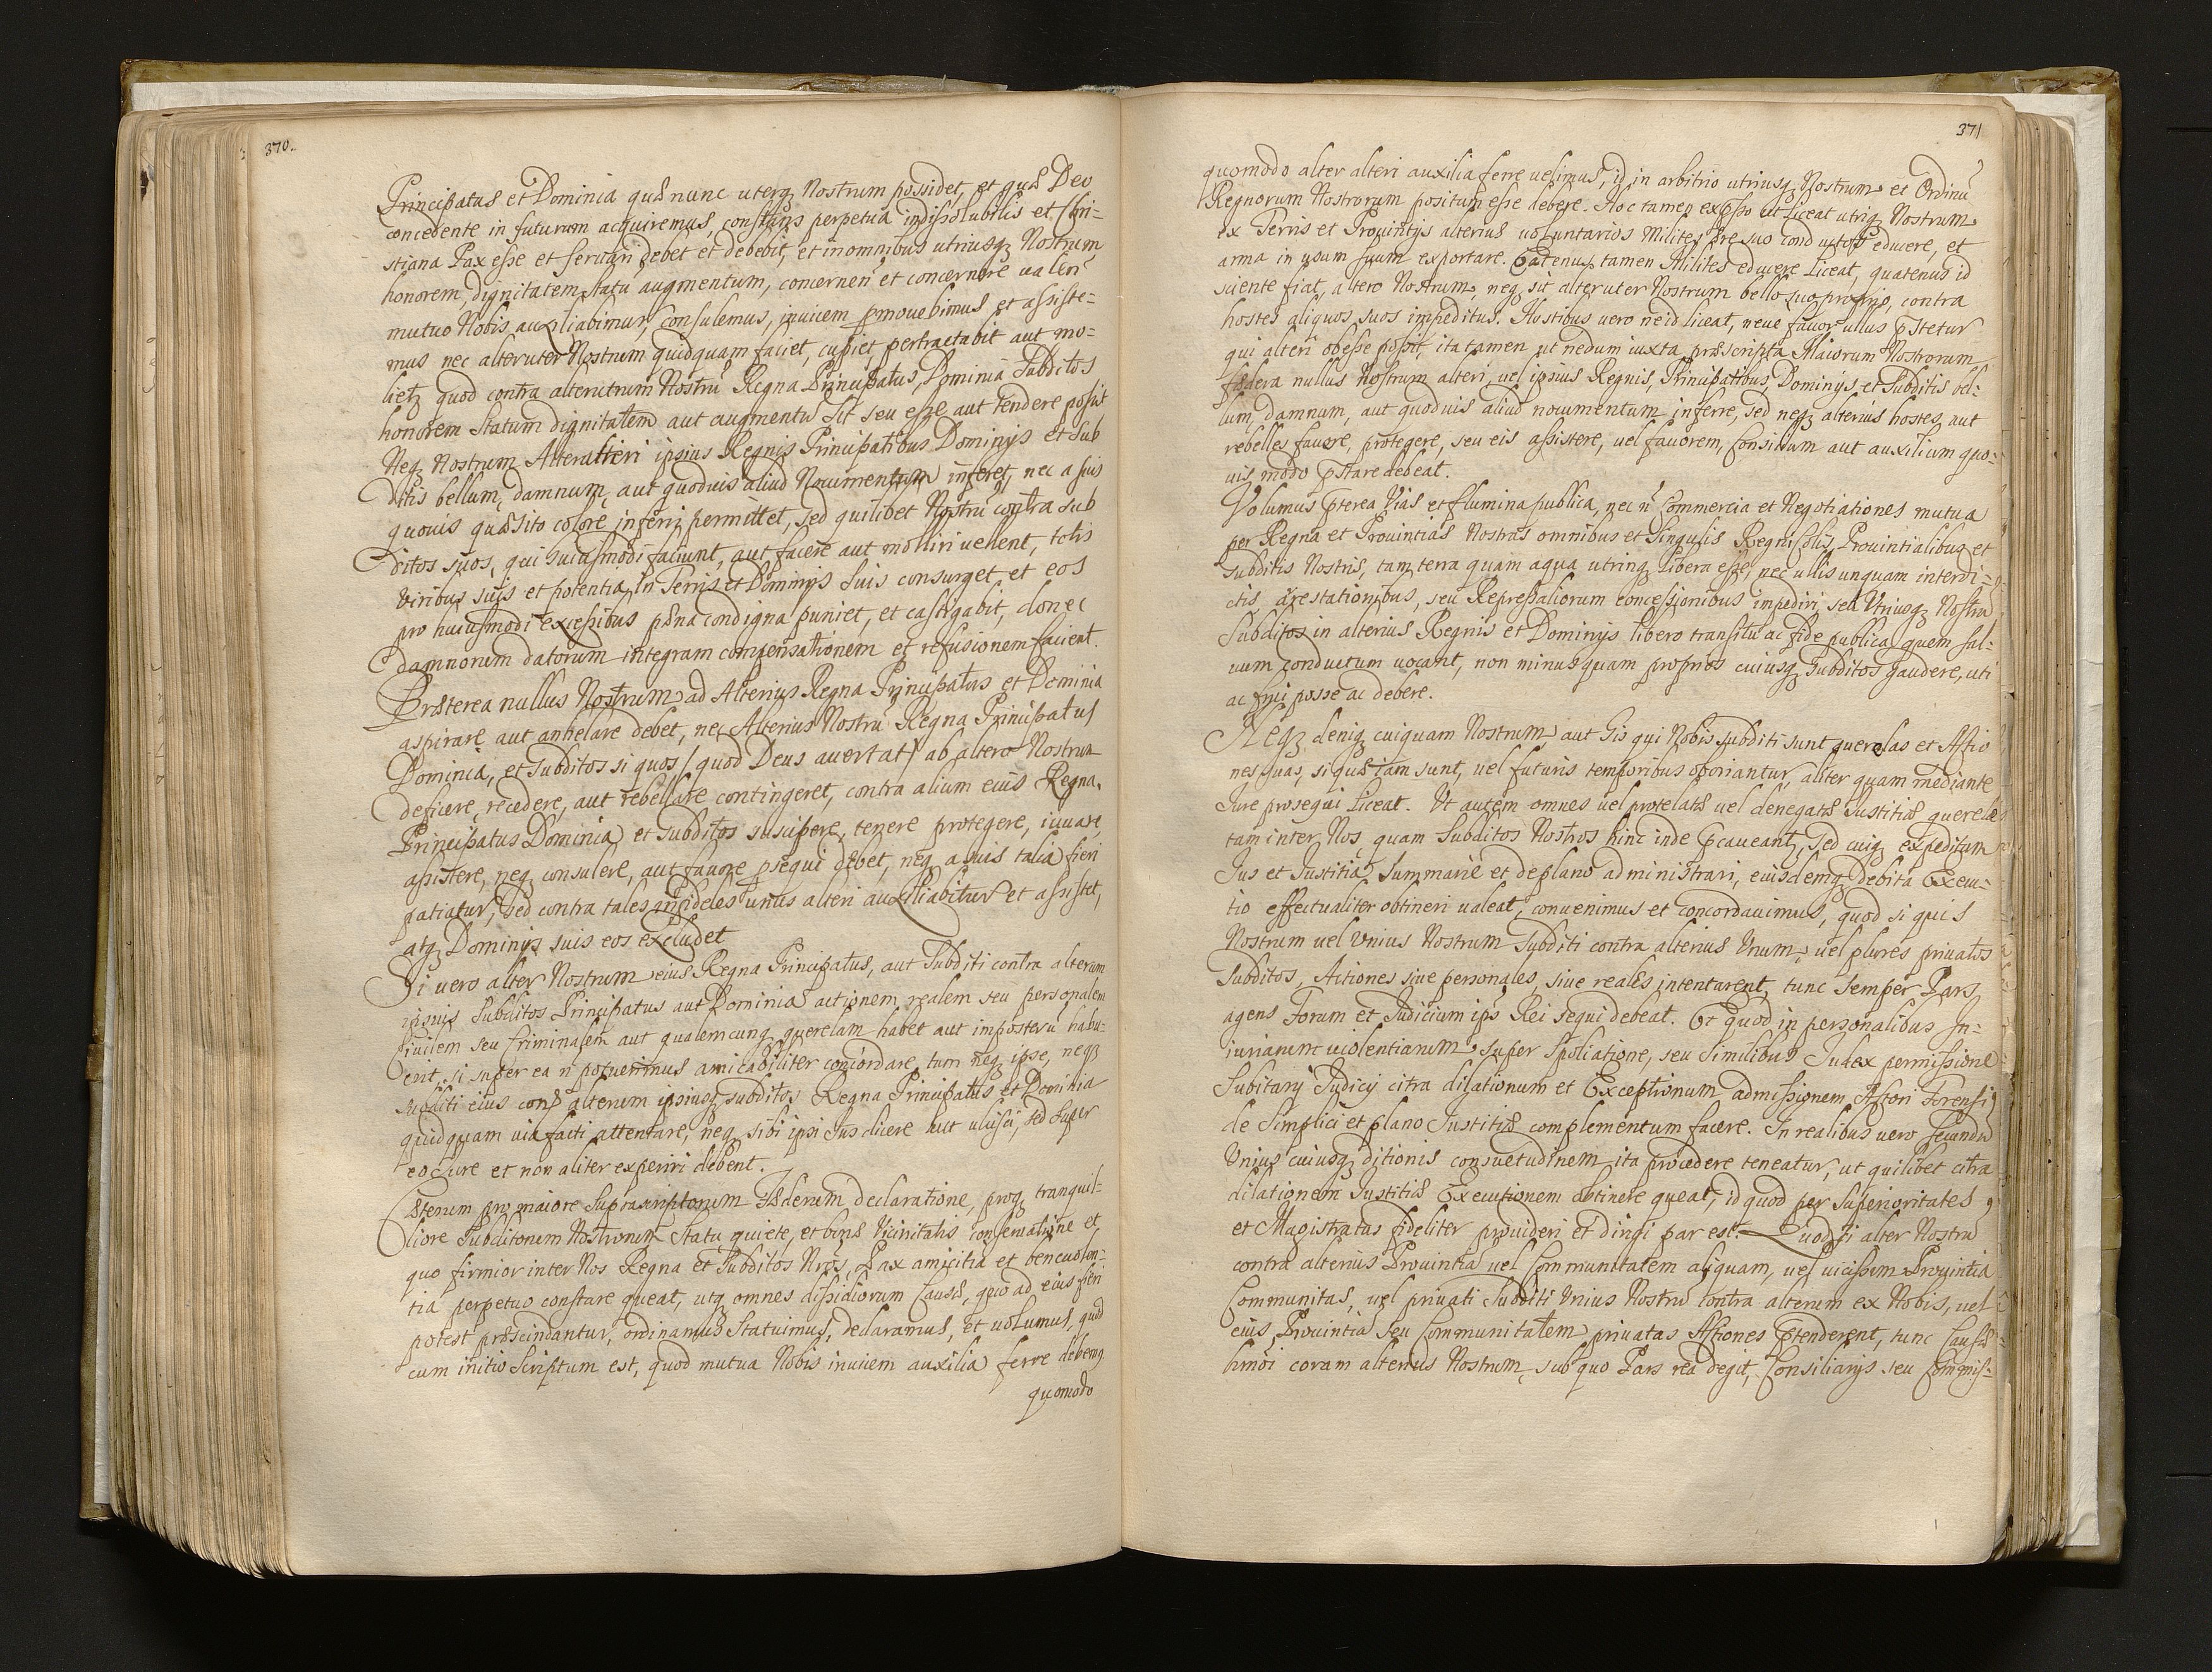 370.
Principatus et Dominia quæ nunc uterq Nostrum possidet, et quæ Deo
concedente in futurum acquiremus, constans perpetua indissolubilis et Chri-
stiana Pax esse et servari debet et debebit, et in omnibus utriusq Nostrum
honorem, dignitatem, statū augmentum, concernen et concernere valen
mutuo Nobis auxiliabimur, consulemus, invicem pmovebimus et assiste-
mus nec alteruter Nostrum quidquam faciet, cupiet pertractabit aut mo-
liet quod contra alterutrum Nostrū Regna Principatus, Dominia Subditos
honorem Statum dignitatem aut augmentū sit seu esse aut tendere possit
Neq Nostrum Alter alteri ipsius Regnis Principatibus Dominijs et Sub
ditis bellum, damnum, aut quodvis aliud Nocumentum inferet, nec a suis
quovis quæsito colore inferri permittet, sed quilibet Nostrū contra sub
ditos suos, qui huiusmodi faciunt, aut facere aut moliri vellent, totis
viribus suis et potentia in Terris et Dominijs suis consurget et eos
pro huiusmodi excessibus pæna condigna puniet, et castigabit, donec
damnorum datorum integram compensationem et refusionem facient.
Præterea nullus Nostrum ad Alterius Regna Principatus et Dominia
aspirare aut anhelare debet, nec Alterius Nostrū Regna Principatus
Dominia, et Subditos si quos / quod Deus avertat / ab altero Nostrum
deficere, recedere, aut rebellare contingeret, contra alium eius Regna,
Principatus Dominia et subditos suscipere, tenere protegere, iuvare,
assistere, neq consulere, aut favore psequi debet, neq a suis talia fieri
patiatur, sed contra tales infideles unus alteri auxiliabitur et assistet,
atq Dominijs suis eos excludet
Si vero alter Nostrum eius Regna Principatus, aut Subditi contra alterum
ipsius Subditos Principatus aut Dominia actionem realem seu personalem
Civilem seu Criminalem aut qualemcunq querelam habet aut imposterū habu-
erit, si super ea n potuerimus amicabiliter concordare, tum neq ipse, neq
subditi eius cont alterum ipsiusq subditos Regna Principatus et Dominia
quidquam via facti attentare, neq sibi ipsi Ius dicere aut ulcisci, sed super
eo Iure et non aliter experiri debent.
Cæterum pro maiore Suprascriptorum Fæderum declaratione, proq tranquil-
liore Subditorum Nostrorum Statu quiete, et bonæ Vicinitatis conservatione et
quo firmior inter Nos Regna et Subditos Nros, Pax amicitia et benevolen-
tia perpetuo constare queat, utq omnes dissidiorum Causæ, quo ad eius fieri
potest præscindantur, ordinamus Statuimus, declaramus, et volumus, quod
cum initio Scriptum est, quod mutua Nobis invicem auxilia ferre debemq
quomodo
371
quomodo alter alteri auxilia ferre velimus, id in arbitrio utriusq Nostrum et Ordinū
Regnorum Nostrorum positum esse debere. Hoc tamen expsso ut liceat utriq Nostrum
ex Terris et Provintijs alterius voluntarios Milites pre suo conductos educere, et
arma in usum suum exportare. Eatenus tamen Milites educere liceat, quatenus id
sciente fiat, altero Nostrum, neq sit alteruter Nostrum bello suo proprio, contra
hostes aliquos suos impeditus. Hostibus vero ne id liceat, neve favor ullus pstetur
qui alteri obesse possit, ita tamen ut nedum iuxta præscripta Maiorum Nostrorum
fædera nullus Nostrum alteri vel ipsius Regnis, Principatibus, Dominijs et Subditis bel-
lum, damnum, aut quodvis aliud nocumentum inferre, sed neq alterius hostes, aut
rebelles favore, protegere, seu eis assistere, vel favorem, Consilium aut auxilium quo-
vis modo pstare debeat.
Volumus pterea Vias et flumina publica, nec n Commercia et Negotiationes mutua
per Regna et Provintias Nostras omnibus et Singulis Regnicolis, Provintialibus et
subditis Nostris, tam terra quam aqua utrinq libera esse, nec ullis unquam interdi-
ctis, arestationibus, seu Repressaliorum concessionibus impediri, sed Utriusq Nostrū
Subditos in alterius Regnis et Dominijs libero transitu ac fide publica, quem sal-
vum conductum vocant, non minus quam proprios cuiusq subditos gaudere, uti
ac frui posse ac debere.
Neq deniq cuiquam Nostrum aut Gis qui Nobis subditi sunt querelas et Actio
nes suas, si quæ iam sunt, vel futuris temporibus oboriantur, aliter quam mediante
Iure prosequi liceat. Ut autem omnes vel protelatæ vel denegatæ Iustitiæ querelæ
tam inter Nos, quam Subditos Nostros hinc inde pcaveant, sed cuiq expeditum
Ius et Iustitia summarie et de plano administrari, eiusdemq debita Execu-
tio effectualiter obtineri valeat, convenimus et concordavimus, quod si quis
Nostrum vel Unius Nostrum Subditi contra alterius Unum, vel plures privatos
subditos, Actiones sive personales, sive reales intentarent, tunc Semper Pars
agens Forum et Iudicium ips Rei sequi debeat. Et quod in personalibus In-
iuriarum violentiarum super Spoliatione, seu Similibus Iudex permissione
Subitarij Iudicij citra dilationum et Exceptionum admissionem Actori Forensi
de Simplici et plano Iustitiæ complementum facere. In realibus vero Secundū
Unius cuiusq ditionis consuetudinem ita procedere teneatur, ut quilibet citra
dilationem Iustitiæ Executionem obtinere queat, id quod per Superioritates
et Magistratus fideliter provideri et dirigi par est. Quod si alter Nostrū
contra alterius Provintiā vel Communitatem aliquam, vel vicissim Provintia
Communitas, vel privati Subditi Unius Nostrū contra alterum ex Nobis, vel
eius Provintiā seu Communitatem privatas Actiones ptenderent, tunc Causæ
hmōi coram alterius Nostrum, sub quo Pars rea degit, Consiliarijs seu Commis-